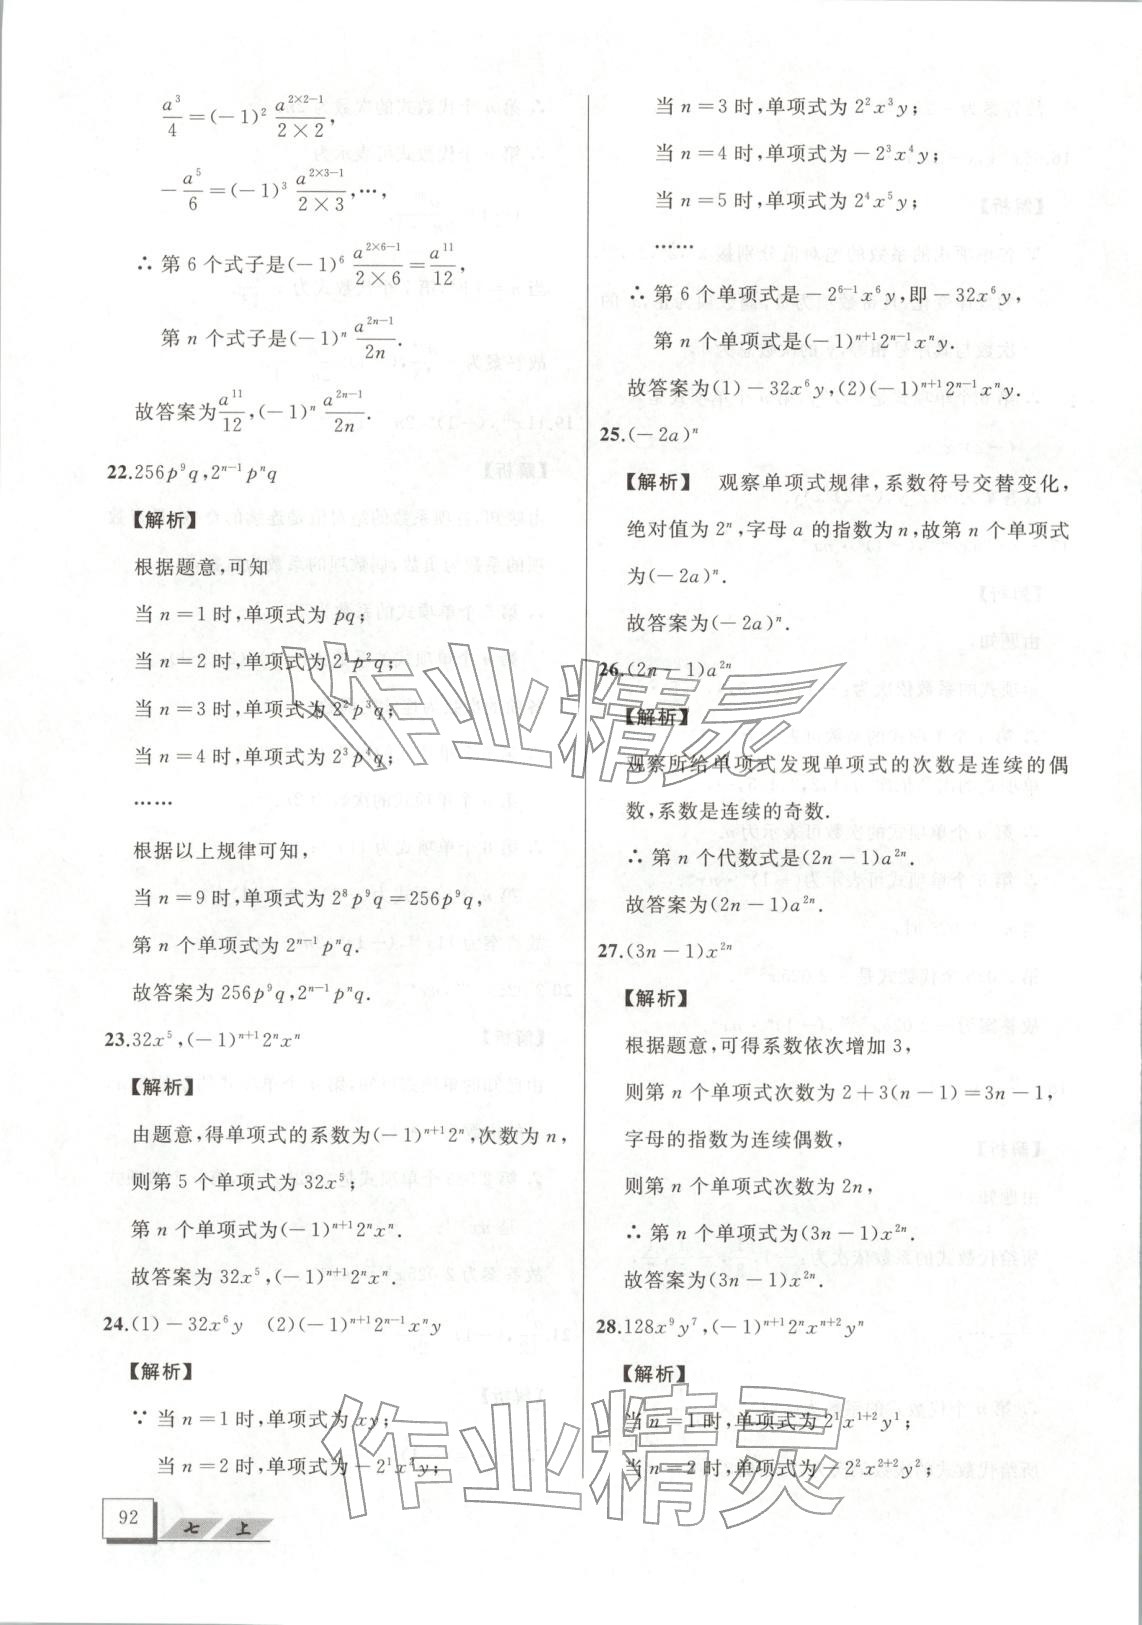 a³/4=(-1)² a^{2×2-1}/(2×2),
-a⁵/6=(-1)³ a^{2×3-1}/(2×3),…,
∴第6个式子是(-1)⁶ a^{2×6-1}/(2×6)=a¹¹/12,
第n个式子是(-1)ⁿ a^{2n-1}/2n.
故答案为a¹¹/12,(-1)ⁿ a^{2n-1}/2n.
22.256p⁹q,2^{n-1}pⁿq
【解析】
根据题意,可知
当n=1时,单项式为pq;
当n=2时,单项式为2¹p²q;
当n=3时,单项式为2²p³q;
当n=4时,单项式为2³p⁴q;
……
根据以上规律可知,
当n=9时,单项式为2⁸p⁹q=256p⁹q,
第n个单项式为2^{n-1}pⁿq.
故答案为256p⁹q,2^{n-1}pⁿq.
23.32x⁵,(-1)^{n+1}2ⁿxⁿ
【解析】
由题意,得单项式的系数为(-1)^{n+1}2ⁿ,次数为n,
则第5个单项式为32x⁵;
第n个单项式为(-1)^{n+1}2ⁿxⁿ.
故答案为32x⁵,(-1)^{n+1}2ⁿxⁿ.
24.(1)-32x⁶y (2)(-1)^{n+1}2^{n-1}xⁿy
【解析】
∵当n=1时,单项式为xy;
当n=2时,单项式为-2¹x²y;
92
七 上
当n=3时,单项式为2²x³y;
当n=4时,单项式为-2³x⁴y;
当n=5时,单项式为2⁴x⁵y;
……
∴第6个单项式是-2^{6-1}x⁶y,即-32x⁶y,
第n个单项式是(-1)^{n+1}2^{n-1}xⁿy.
故答案为(1)-32x⁶y,(2)(-1)^{n+1}2^{n-1}xⁿy.
25.(-2a)ⁿ
【解析】 观察单项式规律,系数符号交替变化,
绝对值为2ⁿ,字母a的指数为n,故第n个单项式
为(-2a)ⁿ.
故答案为(-2a)ⁿ.
26.(2n-1)a^{2n}
【解析】
观察所给单项式发现单项式的次数是连续的偶
数,系数是连续的奇数.
∴第n个代数式是(2n-1)a^{2n}.
故答案为(2n-1)a^{2n}.
27.(3n-1)x^{2n}
【解析】
根据题意,可得系数依次增加3,
则第n个单项式次数为2+3(n-1)=3n-1,
字母的指数为连续偶数,
则第n个单项式次数为2n,
∴第n个单项式为(3n-1)x^{2n}.
故答案为(3n-1)x^{2n}.
28.128x⁹y⁷,(-1)^{n+1}2ⁿx^{n+2}yⁿ
【解析】
当n=1时,单项式为2¹x^{1+2}y¹;
当n=2时,单项式为-2²x^{2+2}y²;
作业精灵
作业精灵